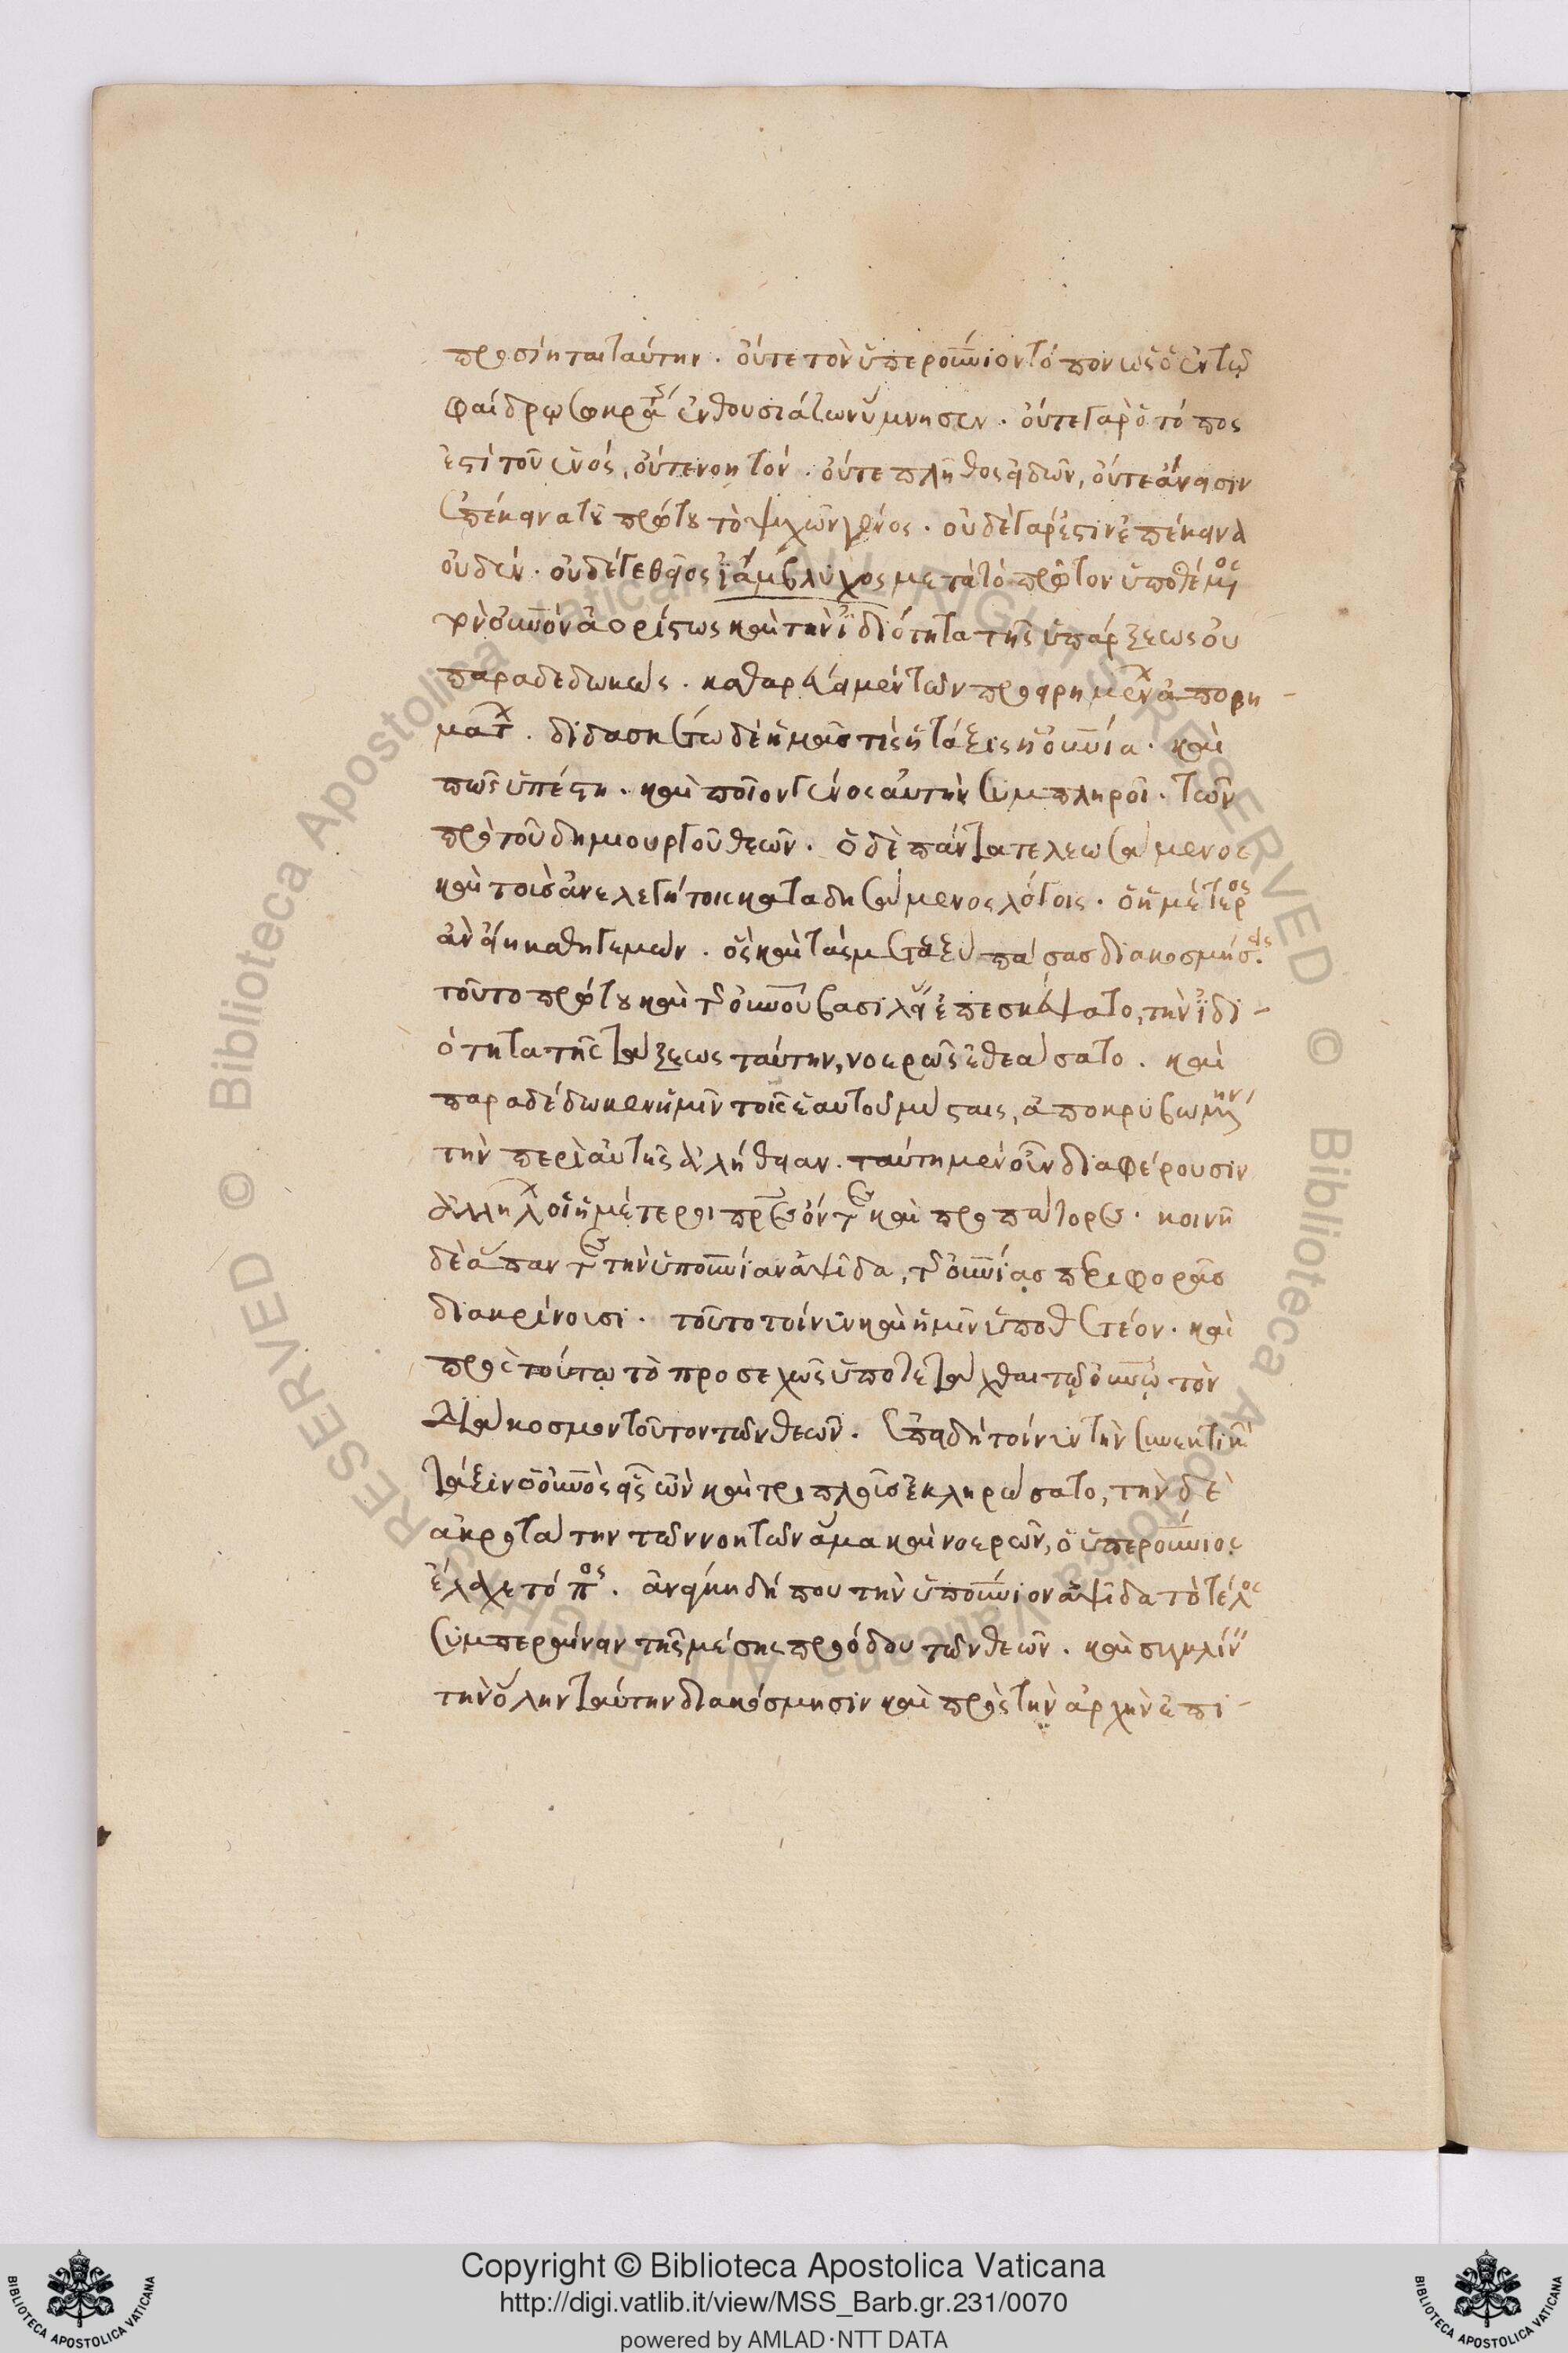 προσίηται ταύτην. οὔτε τὸν ὑπεροὐνιον τόπον ὡς ὁ ἐν τῷ
φαίδρῳ σωκράτης ἐνθουσιάζων ὕμνησεν. οὔτε γὰρ ὁ τόπος
ἐστὶ τοῦ ἑνός, οὔτε νοητόν. οὔτε πλῆθος εἰδῶν, οὔτε ἄνεισιν
ἐπέκεινα τοῦ πρώτου τὸ ψυχῶν γένος. οὐδὲ γάρ ἐστιν ἐπέκεινα
οὐδέν. οὐδέ γε θεῖος ἰάμβλιχος μετὰ τὸ πρῶτον ὑποθέμενος
τὸν οὐνὸν ἀορίστως καὶ τὴν ἰδιότητα τῆς ὑπάρξεως οὐ
παραδεδωκώς. καθαρεύει μὲν τῶν προειρημένων ἀπορη-
μάτων. διδασκέτω δὲ ἡμᾶς τίς ἡ τάξις ἡ οὐνία. καὶ
πῶς ὑπέστη. καὶ ποῖον γένος αὐτὴν συμπληροῖ. τῶν
πρὸ τοῦ δημιουργοῦ θεῶν. ὁ δὲ πάντα τελεωσάμενος
καὶ τοῖς ἀνελέγκτοις καταδησάμενος λόγοις. ὁ ἡμέτερος
ἂν εἴη καθηγεμών. ὃς καὶ τὰς μεταξὺ πάσας διακοσμήσεις
τοῦ τε πρώτου καὶ τοῦ οὐνοῦ βασιλέως ἐπεσκέψατο, τὴν ἰδι-
ότητα τῆς τάξεως ταύτην, νοερῶς ἐθεάσατο. καὶ
παραδέδωκεν ἡμῖν τοῖς ἑαυτοῦ μύσταις, ἀποκριβωμένην
τὴν περὶ αὐτῆς ἀλήθειαν. ταύτῃ μὲν οὖν διαφέρουσιν
ἀλλήλων οἱ ἡμέτεροι πρεσβύτεροι καὶ προπάτορες. κοινῇ
δὲ ἅπαντες τὴν ὑποὐνίαν ἁψῖδα, τῆς οὐνίας περιφορᾶς
διακρίνουσι. τοῦτο τοίνυν καὶ ἡμῖν ὑποθετέον. καὶ
πρὸς τούτῳ τὸ προσεχῶς ὑποτετάχθαι τῷ οὐνῷ τὸν
διάκοσμον τοῦτον τῶν θεῶν. ἐπειδὴ τοίνυν τὴν συνεκτικὴν
τάξιν ὁ οὐνὸς εἷς ὢν καὶ τριπλοῦς ἐκληρώσατο, τὴν δὲ
ἀκροτάτην τῶν νοητῶν ἅμα καὶ νοερῶν, ὁ ὑπεροὐνιος
ἔλαχε τόπος. ἀνάγκη δή που τὴν ὑποὐνιον ἁψῖδα τὸ τέλος
συμπεραίνειν τῆς μέσης προόδου τῶν θεῶν. καὶ συγκλείειν
τὴν ὅλην ταύτην διακόσμησιν καὶ πρὸς τὴν ἀρχὴν ἐπι-
Copyright © Biblioteca Apostolica Vaticana
http://digi.vatlib.it/view/MSS_Barb.gr.231/0070
powered by AMLAD·NTT DATA